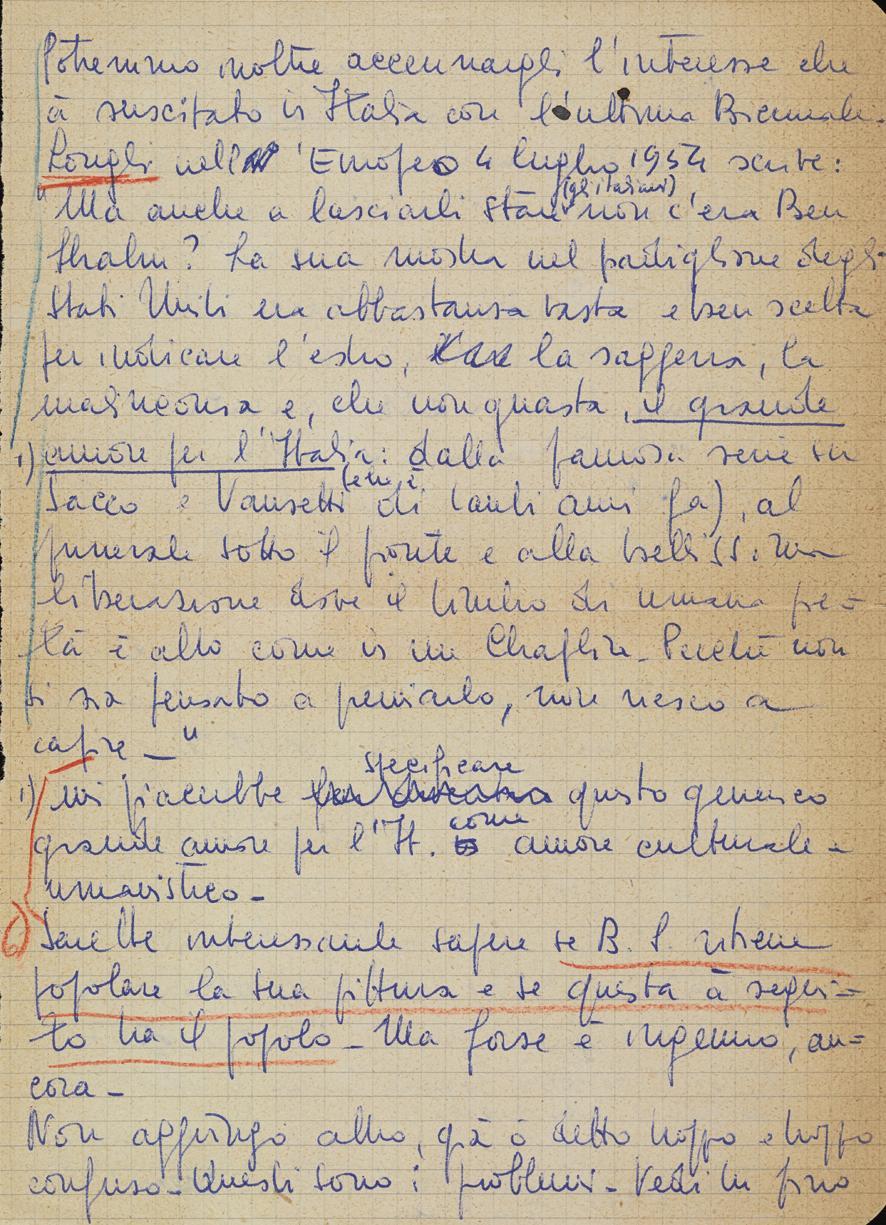 Potremmo inoltre accennargli l'interesse che
à suscitato in Italia con l'ultima Biennale.
Longhi nell' 'Europeo 4 luglio 1954 scrive:
"Ma anche a lasciarli stare (gli italiani) non c'era Ben
Shahn? La sua mostra nel padiglione degli
Stati Uniti era abbastanza vasta e ben scelta
per indicare l'estro, la saggezza, la
malinconia e, che non guasta, il grande
1) amore per l'Italia: dalla famosa serie su
Sacco e Vanzetti (che è di tanti anni fa), al
funerale sotto il ponte e alla bellissima
liberazione dove il timbro di umana pie-
tà è alto come in un Chaplin. Perché non
si sia pensato a premiarlo, non riesco a
capire _"
1) mi piacerebbe specificare questo generico
grande amore per l'It. come amore culturale-
umanistico-
Sarebbe interessante sapere se B. S. ritiene
popolare la sua pittura e se questa à segui-
to tra il popolo - Ma forse è ingenuo, an=
cora-
Non aggiungo altro, già ò detto troppo e troppo
confuso - Questi sono i problemi - Vedi tu fino